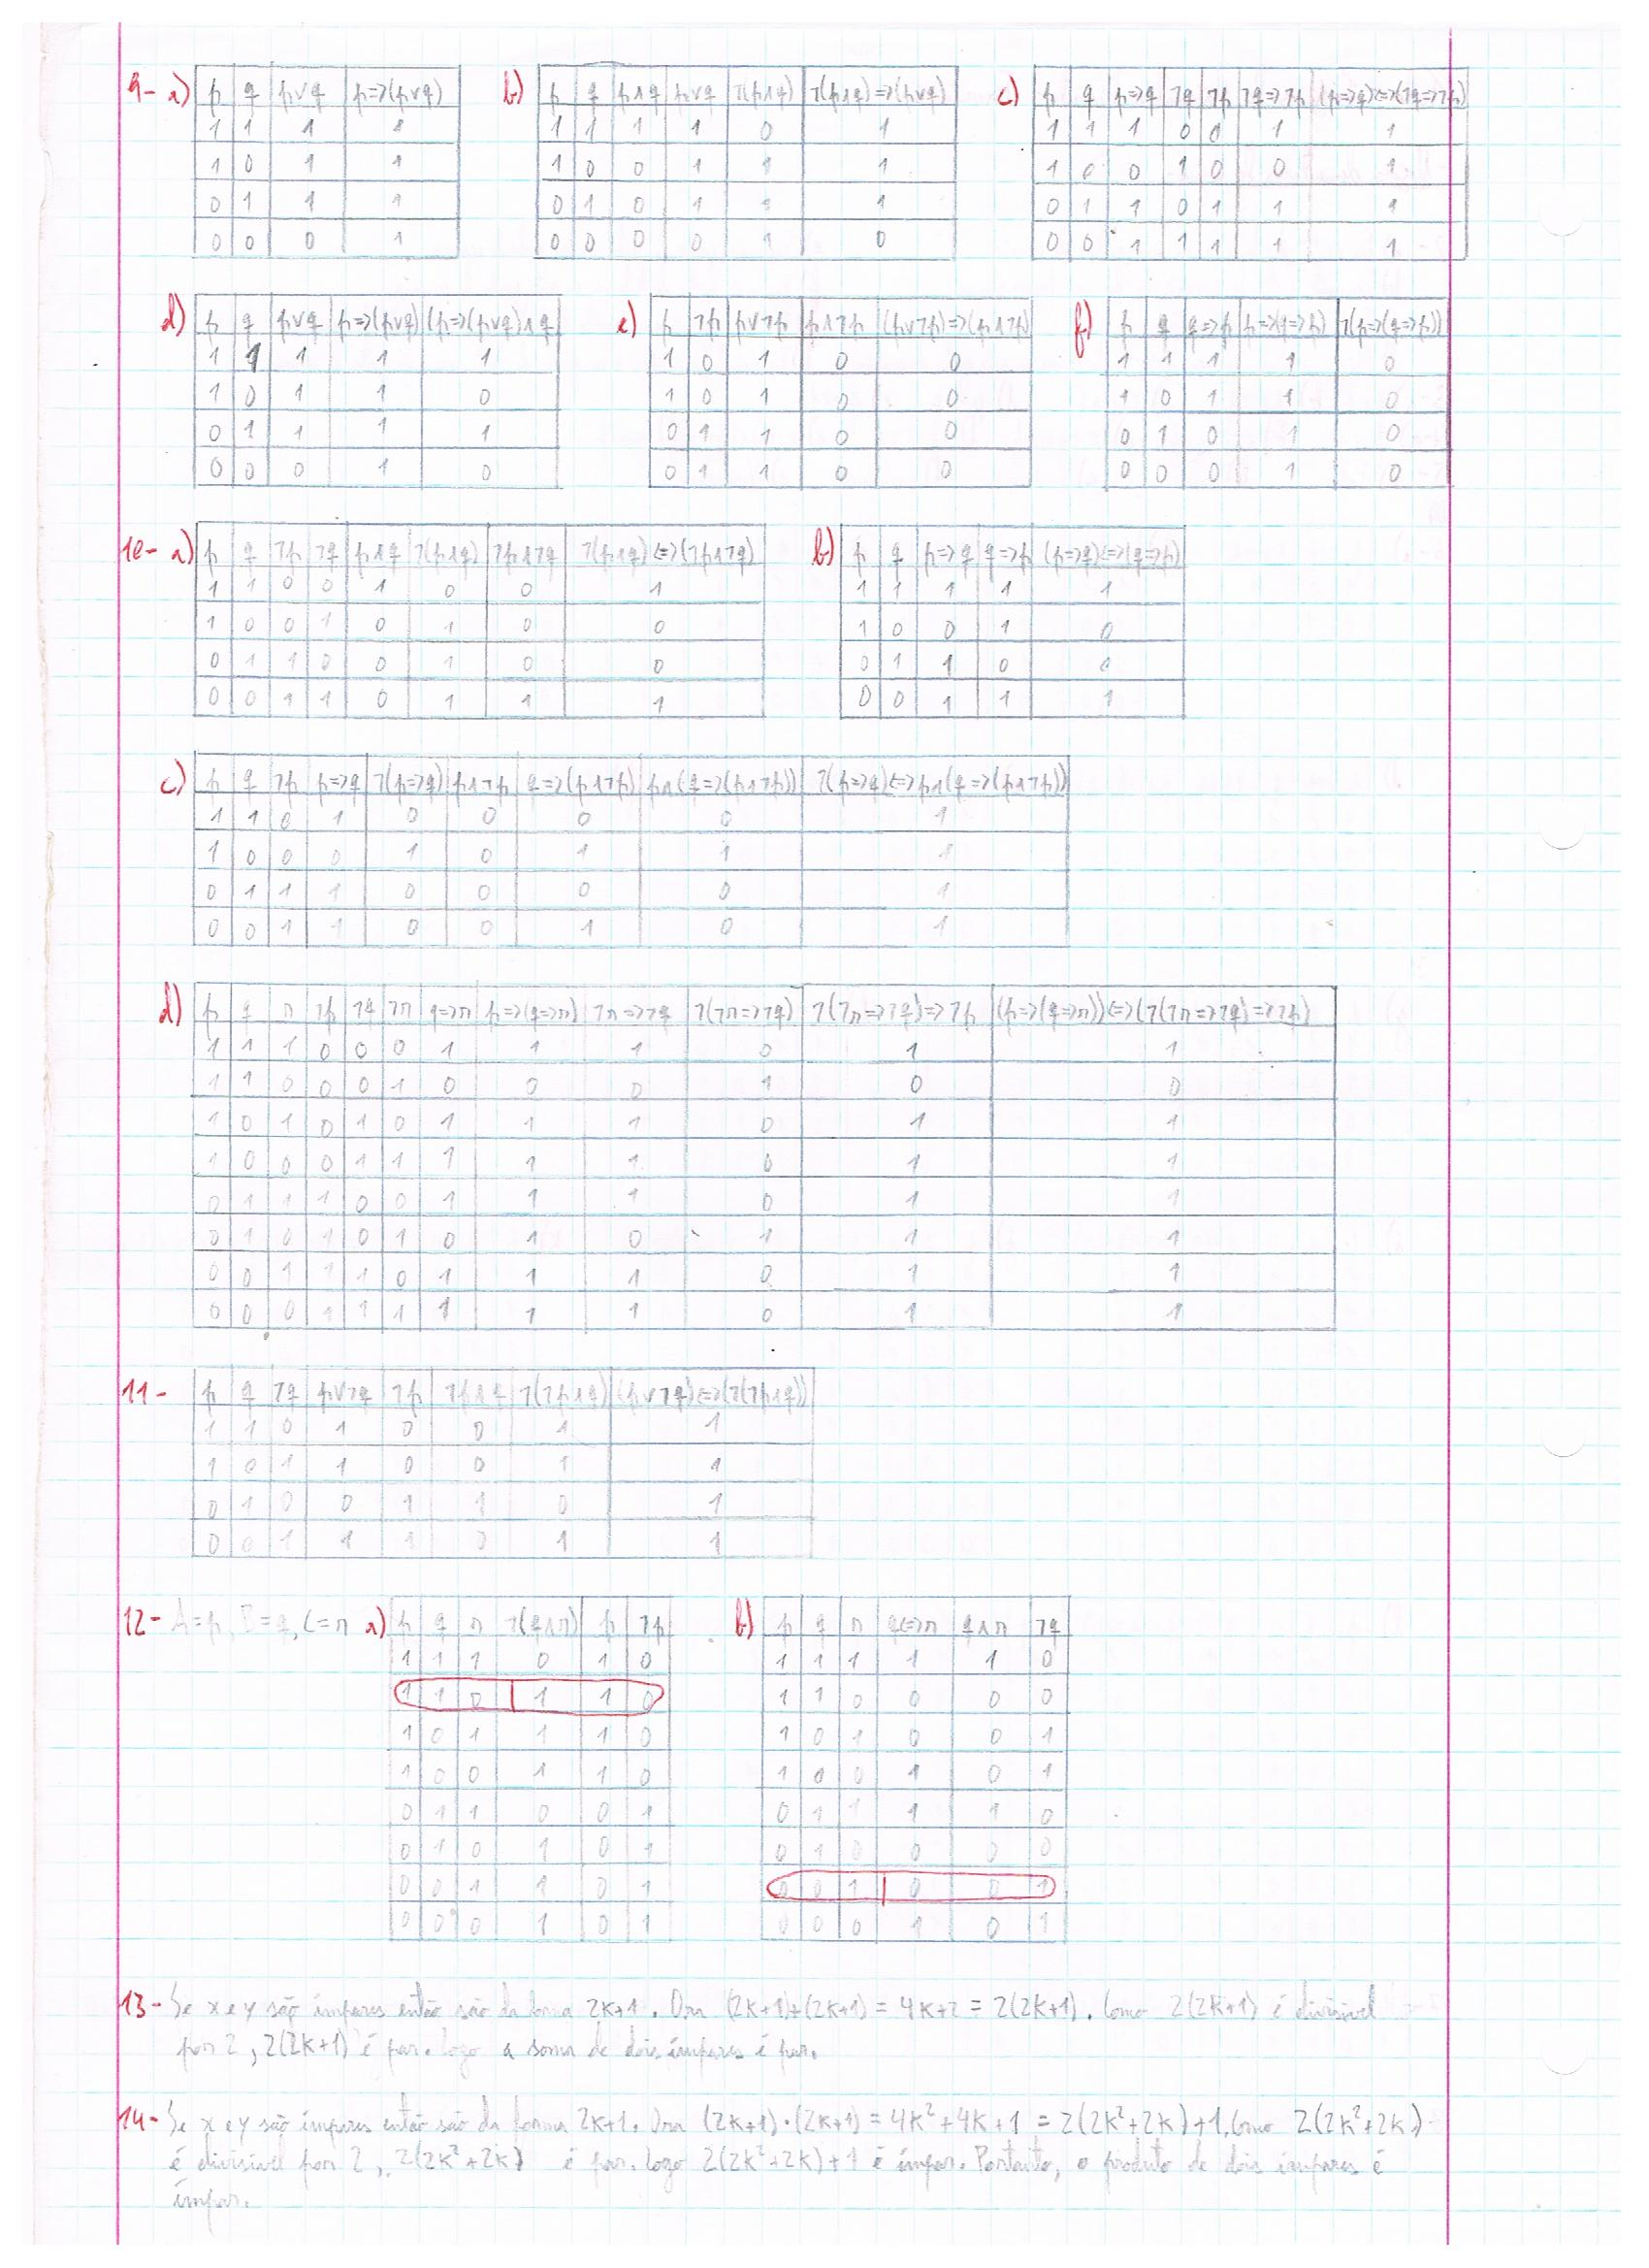 9- a) p q p∨q p=>(p∨q)
1 1 1 1
1 0 1 1
0 1 1 1
0 0 0 1
b) p q p∧q p∨q ¬(p∧q) ¬(p∧q)=>(p∨q)
1 1 1 1 0 1
1 0 0 1 1 1
0 1 0 1 1 1
0 0 0 0 1 0
c) p q p=>q ¬q ¬p ¬q=>¬p (p=>q)<=>(¬q=>¬p)
1 1 1 0 0 1 1
1 0 0 1 0 0 1
0 1 1 0 1 1 1
0 0 1 1 1 1 1
d) p q p∨q p=>(p∨q) (p=>(p∨q)∧q
1 1 1 1 1
1 0 1 1 0
0 1 1 1 1
0 0 0 1 0
e) p ¬p p∨¬p p∧¬p (p∨¬p)=>(p∧¬p)
1 0 1 0 0
1 0 1 0 0
0 1 1 0 0
0 1 1 0 0
f) p q q=>p p=>(q=>p) ¬(p=>(q=>p))
1 1 1 1 0
1 0 1 1 0
0 1 0 1 0
0 0 0 1 0
10- a) p q ¬p ¬q p∧q ¬(p∧q) ¬p∧¬q ¬(p∧q)<=>(¬p∧¬q)
1 1 0 0 1 0 0 1
1 0 0 1 0 1 0 0
0 1 1 0 0 1 0 0
0 0 1 1 0 1 1 1
b) p q p=>q q=>p (p=>q)<=>(q=>p)
1 1 1 1 1
1 0 0 1 0
0 1 1 0 0
0 0 1 1 1
c) p q ¬p p=>q ¬(p=>q) p∧¬p q=>(p∧¬p) p∧(q=>(p∧¬p)) ¬(p=>q)<=>p∧(q=>(p∧¬p))
1 1 0 1 0 0 0 0 1
1 0 0 0 1 0 1 1 1
0 1 1 1 0 0 0 0 1
0 0 1 1 0 0 1 0 1
d) p q n ¬p ¬q ¬n q=>n p=>(q=>n) ¬n=>¬q ¬(¬n=>¬q) ¬(¬n=>¬q)=>¬p (p=>(q=>n))<=>(¬(¬n=>¬q)=>¬p)
1 1 1 0 0 0 1 1 1 0 1 1
1 1 0 0 0 1 0 0 0 1 0 0
1 0 1 0 1 0 1 1 1 0 1 1
1 0 0 0 1 1 1 1 1 0 1 1
0 1 1 1 0 0 1 1 1 0 1 1
0 1 0 1 0 1 0 1 0 1 1 1
0 0 1 1 1 0 1 1 1 0 1 1
0 0 0 1 1 1 1 1 1 0 1 1
11- p q ¬q p∨¬q ¬p ¬p∧q ¬(¬p∧q) (p∨¬q)<=>(¬(¬p∧q))
1 1 0 1 0 0 1 1
1 0 1 1 0 0 1 1
0 1 0 0 1 1 0 1
0 0 1 1 1 0 1 1
12- A=p, B=q, C=n a) p q n ¬(q∧n) p ¬p
1 1 1 0 1 0
1 1 0 1 1 0
1 0 1 1 1 0
1 0 0 1 1 0
0 1 1 0 0 1
0 1 0 1 0 1
0 0 1 1 0 1
0 0 0 1 0 1
b) p q n q<=>n q∧n ¬q
1 1 1 1 1 0
1 1 0 0 0 0
1 0 1 0 0 1
1 0 0 1 0 1
0 1 1 1 1 0
0 1 0 0 0 0
0 0 1 0 0 1
0 0 0 1 0 1
13- Se x e y são ímpares então são da forma 2K+1. Ora (2K+1)+(2K+1) = 4K+2 = 2(2K+1). Como 2(2K+1) é divisível
por 2, 2(2K+1) é par. Logo a soma de dois ímpares é par.
14- Se x e y são ímpares então são da forma 2K+1. Ora (2K+1)·(2K+1) = 4K²+4K+1 = 2(2K²+2K)+1. Como 2(2K²+2K)
é divisível por 2, 2(2K²+2K) é par. Logo 2(2K²+2K)+1 é ímpar. Portanto, o produto de dois ímpares é
ímpar.